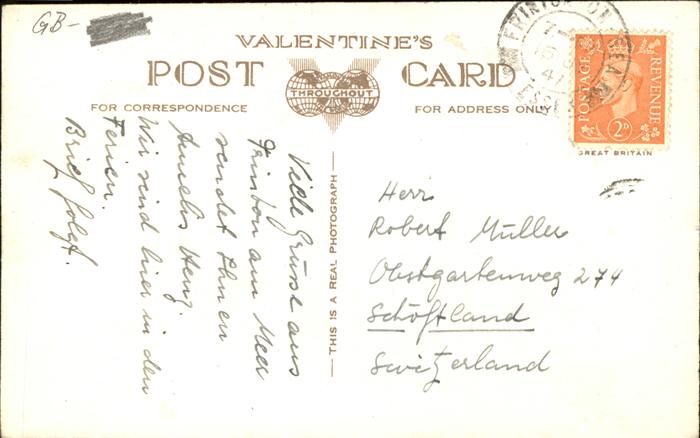 GB-
VALENTINE'S
POST CARD
THROUGHOUT
FOR CORRESPONDENCE
FOR ADDRESS ONLY
POSTAGE
REVENUE
2D
GREAT BRITAIN
FRINTON ON SEA
ESSEX
THIS IS A REAL PHOTOGRAPH
Viele Grüsse aus
Frinton am Meer
sendet Ihnen
Wir sind hier in den
Ferien.
Brief folgt.
Herr
Robert Müller
Obstgartenweg 274
Schöftland
Switzerland